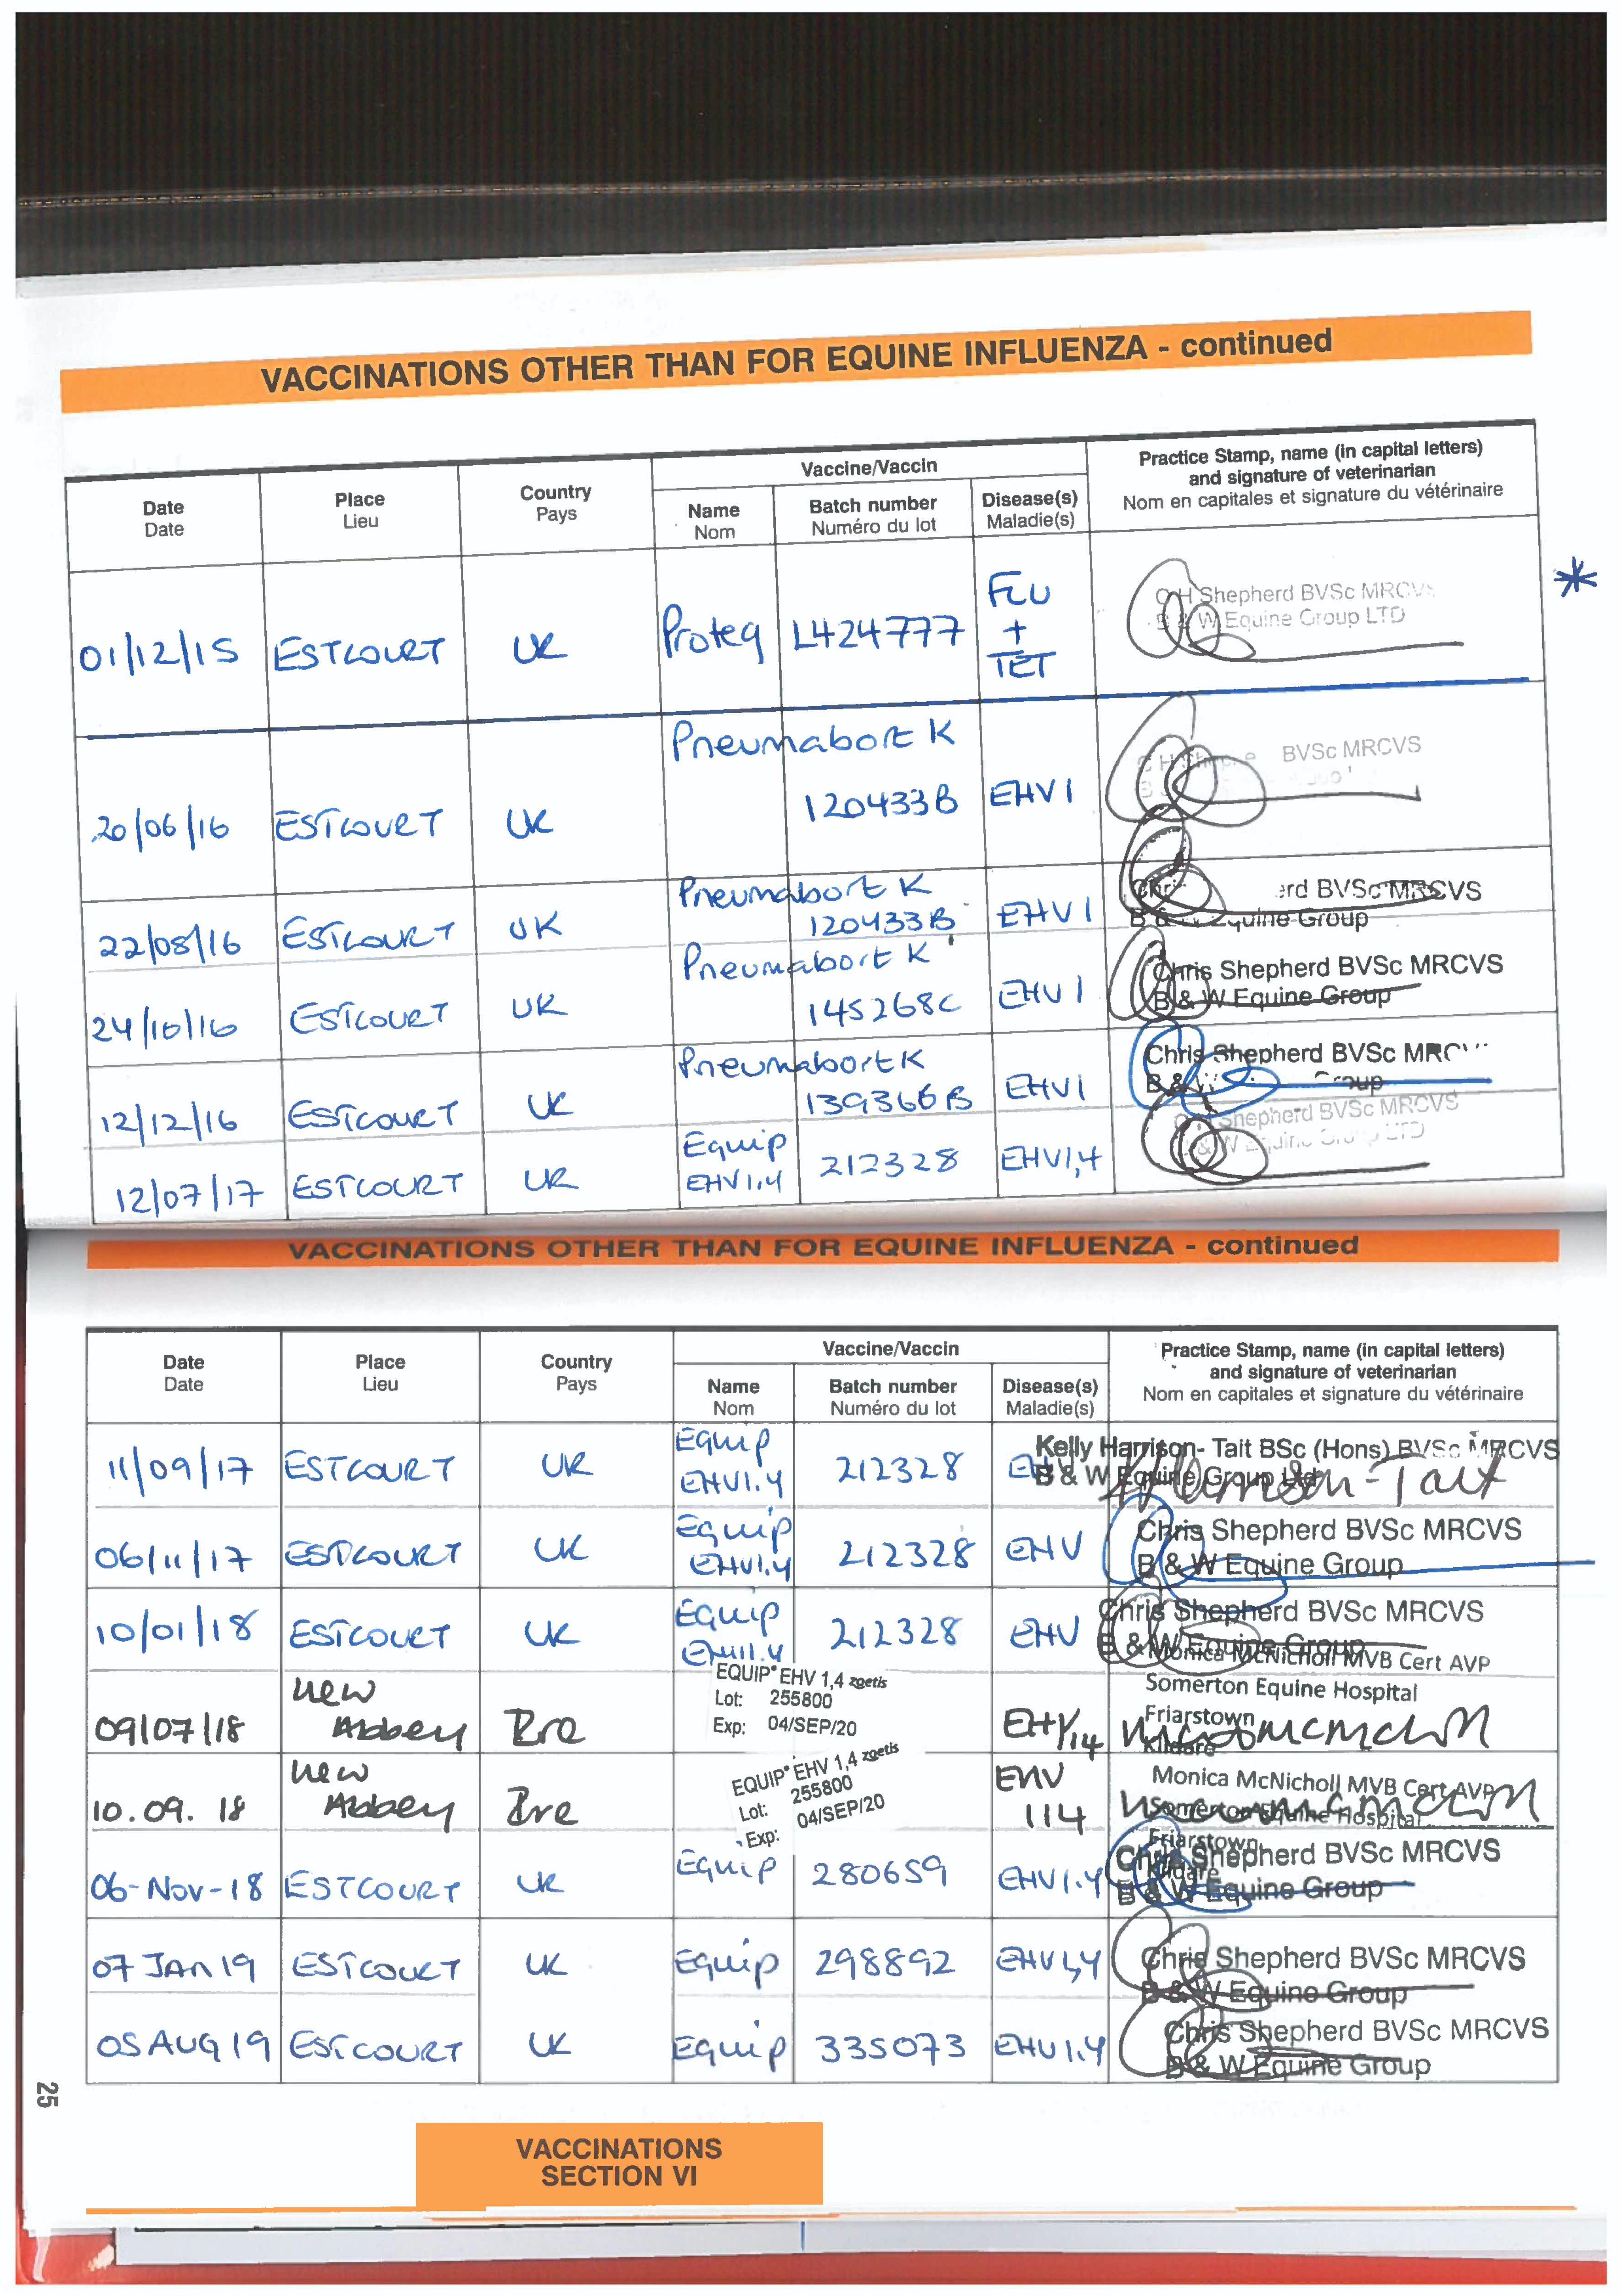 VACCINATIONS OTHER THAN FOR EQUINE INFLUENZA - continued
Date
Date
Place
Lieu
Country
Pays
Vaccine/Vaccin
Name
Nom
Batch number
Numéro du lot
Disease(s)
Maladie(s)
Practice Stamp, name (in capital letters)
and signature of veterinarian
Nom en capitales et signature du vétérinaire
01/12/15 ESTCOURT UK Proteq L424777 FLU + TET
C H Shepherd BVSc MRCVS
B & W Equine Group LTD
*
20/06/16 ESTCOURT UK Pneumabort K 120433B EHV1
BVSc MRCVS
22/08/16 ESTCOURT UK Pneumabort K 120433B EHV1
BVSc MRCVS
Equine Group
24/10/16 ESTCOURT UK Pneumabort K 145268C EHV1
Chris Shepherd BVSc MRCVS
B & W Equine Group
12/12/16 ESTCOURT UK Pneumabort K 139366B EHV1
Chris Shepherd BVSc
12/07/17 ESTCOURT UK Equip EHV1,4 212328 EHV1,4
Shepherd BVSc MRCVS
LTD
VACCINATIONS OTHER THAN FOR EQUINE INFLUENZA - continued
Date
Date
Place
Lieu
Country
Pays
Vaccine/Vaccin
Name
Nom
Batch number
Numéro du lot
Disease(s)
Maladie(s)
Practice Stamp, name (in capital letters)
and signature of veterinarian
Nom en capitales et signature du vétérinaire
11/09/17 ESTCOURT UK Equip EHV1.4 212328
Kelly Harrison- Tait BSc (Hons) BVSc MRCVS
B & W Equine Group Ltd
Harrison-Tait
06/11/17 ESTCOURT UK Equip EHV1.4 212328 EHV
Chris Shepherd BVSc MRCVS
B & W Equine Group
10/01/18 ESTCOURT UK Equip 212328 EHV
Chris Shepherd BVSc MRCVS
B & W Equine Group
Monica McNicholl MVB Cert AVP
Somerton Equine Hospital
Friarstown
Kildare
09/07/18 New Abbey Ire
EQUIP EHV 1,4 zoetis
Lot: 255800
Exp: 04/SEP/20
EHV 1/4
10.09.18 New Abbey Ire
EQUIP EHV 1,4 zoetis
Lot: 255800
Exp: 04/SEP/20
EHV 1/4
Monica McNicholl MVB Cert AVP
Somerton Equine Hospital
Friarstown
Kildare
06-Nov-18 ESTCOURT UK Equip 280659 EHV1.4
Chris Shepherd BVSc MRCVS
B & W Equine Group
07 JAN 19 ESTCOURT UK Equip 298892 EHV1,4
Chris Shepherd BVSc MRCVS
B & W Equine Group
05 AUG 19 ESTCOURT UK Equip 335073 EHV1.4
Chris Shepherd BVSc MRCVS
B & W Equine Group
25
VACCINATIONS
SECTION VI